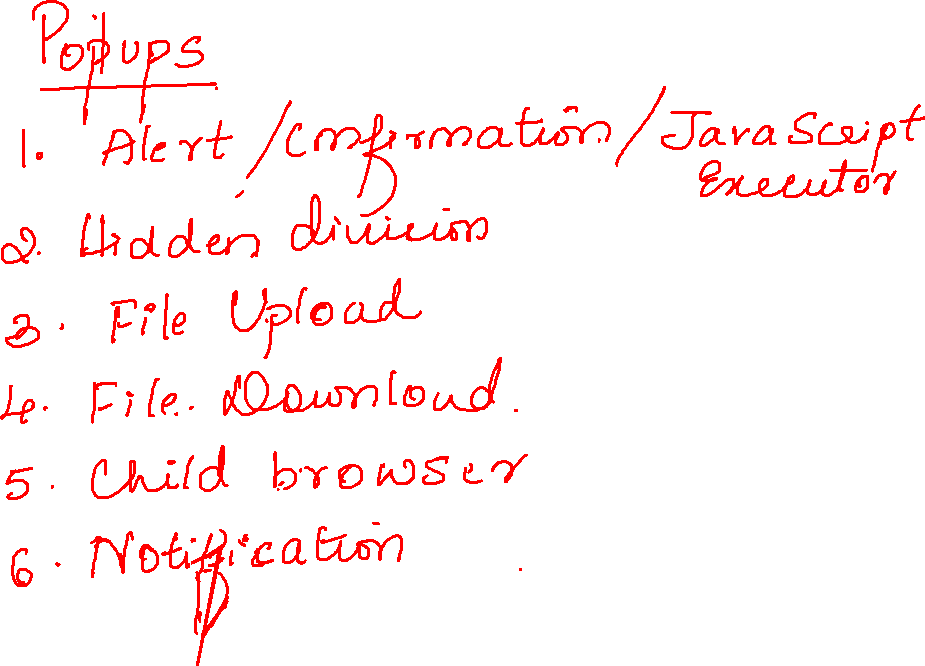 Popups
1. Alert / Confirmation / JavaScript
Executor
2. Hidden division
3. File Upload
4. File. Download.
5. Child browser
6. Notification